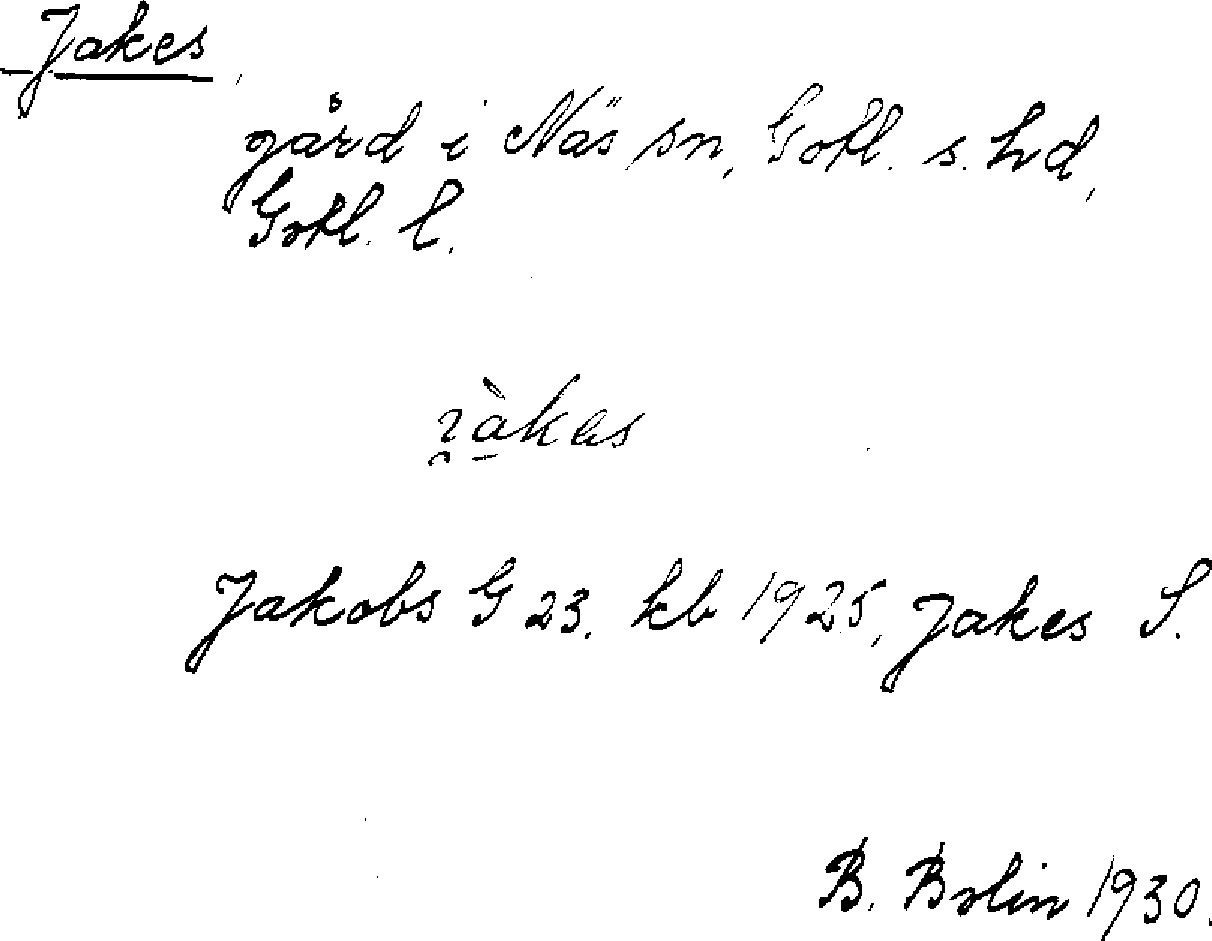 Jakes
gård i Näs sn, Gotl. s. hd,
Gotl. l.
Jakobs G 23. kb 1925, Jakes S.
B. Bolin 1930.